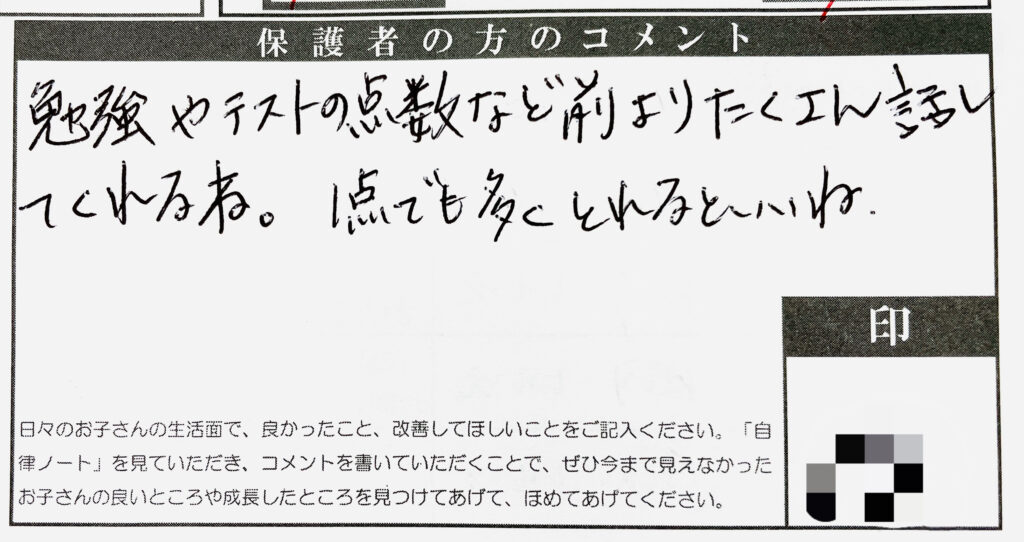 保護者の方のコメント
勉強やテストの点数など前よりたくさん話し
てくれるね。 1点でも多くとれるといいね.
印
日々のお子さんの生活面で、良かったこと、改善してほしいことをご記入ください。「自
律ノート」を見ていただき、コメントを書いていただくことで、ぜひ今まで見えなかった
お子さんの良いところや成長したところを見つけてあげて、ほめてあげてください。